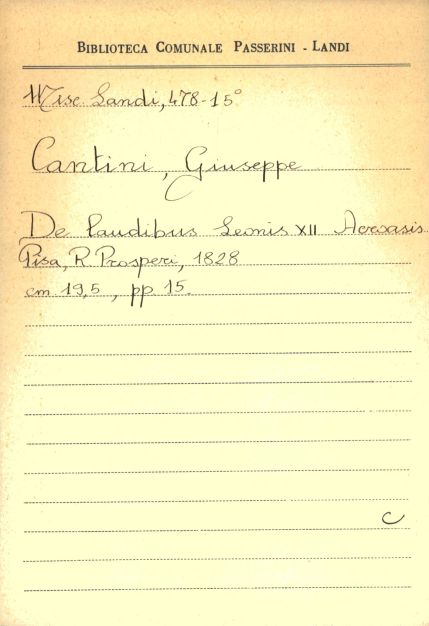 BIBLIOTECA COMUNALE PASSERINI - LANDI
Misc. Landi, 478-15°
Cantini, Giuseppe
De laudibus Leonis XII Acroasis
Pisa, R. Prosperi, 1828
cm 19,5, pp 15.
C